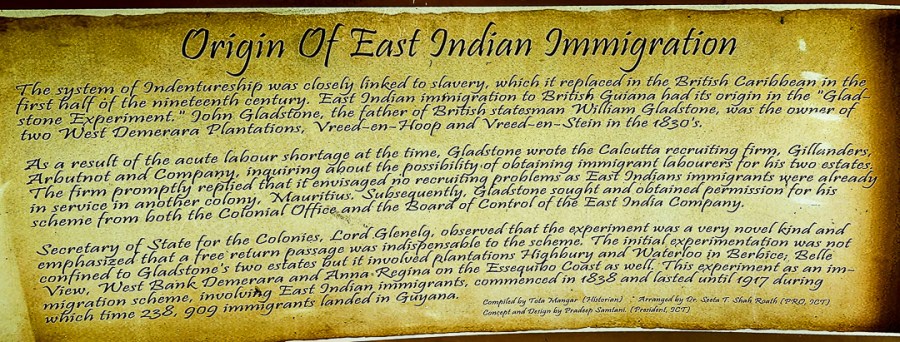 Origin Of East Indian Immigration
The system of Indentureship was closely linked to slavery, which it replaced in the British Caribbean in the
first half of the nineteenth century. East Indian immigration to British Guiana had its origin in the "Glad-
stone Experiment." John Gladstone, the father of British statesman William Gladstone, was the owner of
two West Demerara Plantations, Vreed-en-Hoop and Vreed-en-Stein in the 1830's.
As a result of the acute labour shortage at the time, Gladstone wrote the Calcutta recruiting firm, Gillanders,
Arbutnot and Company, inquiring about the possibility of obtaining immigrant labourers for his two estates.
The firm promptly replied that it envisaged no recruiting problems as East Indians immigrants were already
in service in another colony, Mauritius. Subsequently, Gladstone sought and obtained permission for his
scheme from both the Colonial Office and the Board of Control of the East India Company.
Secretary of State for the Colonies, Lord Glenelg, observed that the experiment was a very novel kind and
emphasized that a free return passage was indispensable to the scheme. The initial experimentation was not
confined to Gladstone's two estates but it involved plantations Highbury and Waterloo in Berbice; Belle
View, West Bank Demerara and Anna Regina on the Essequibo Coast as well. This experiment as an im-
migration scheme, involving East Indian immigrants, commenced in 1838 and lasted until 1917 during
which time 238, 909 immigrants landed in Guyana.
Compiled by Tota Mangar (Historian) : Arranged by Dr. Seeta T. Shah Roath (PRO, ICT)
Concept and Design by Pradeep Samtani. (President, ICT)